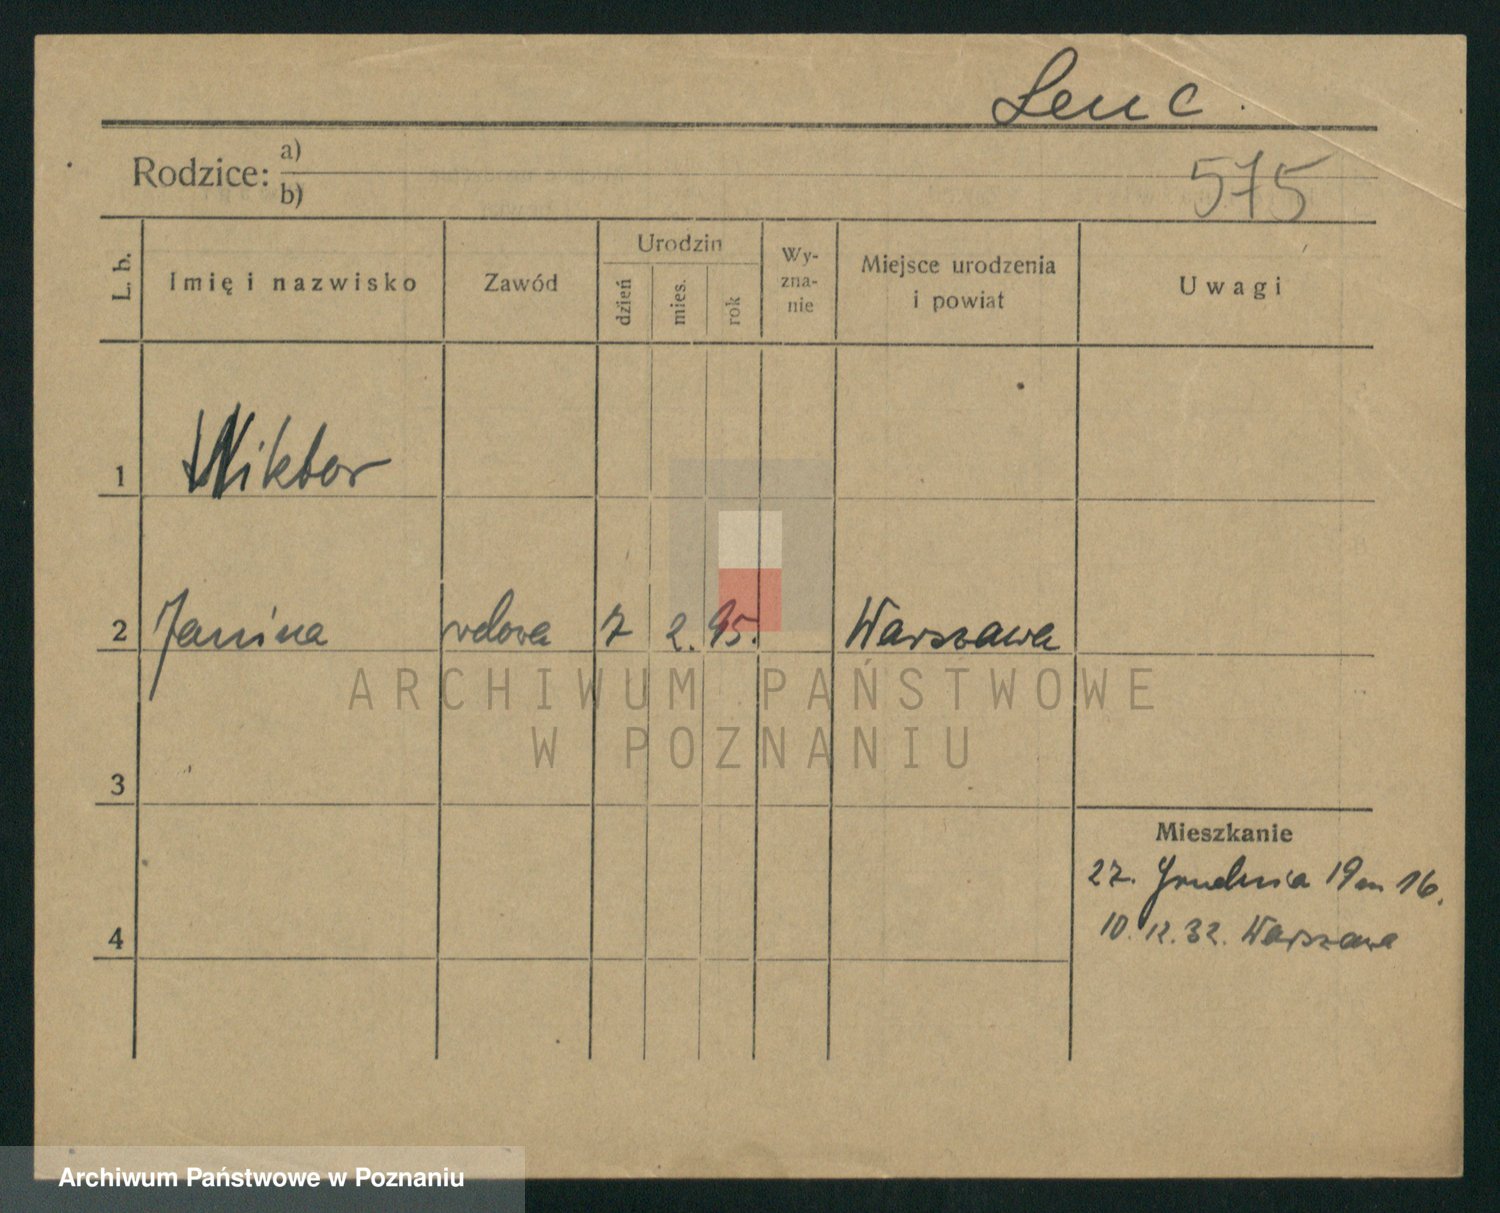 Lenc.
Rodzice: a)
b)
575
L. b.
Imię i nazwisko
Zawód
Urodzin
dzień
mies.
rok
Wy-
zna-
nie
Miejsce urodzenia
i powiat
Uwagi
1 Wiktor
2 Janina wdowa 7 2. 95. Warszawa
3
4
Mieszkanie
27. Grudnia 19 m 16.
10. 12. 32. Warszawa
ARCHIWUM PAŃSTWOWE
W POZNANIU
Archiwum Państwowe w Poznaniu